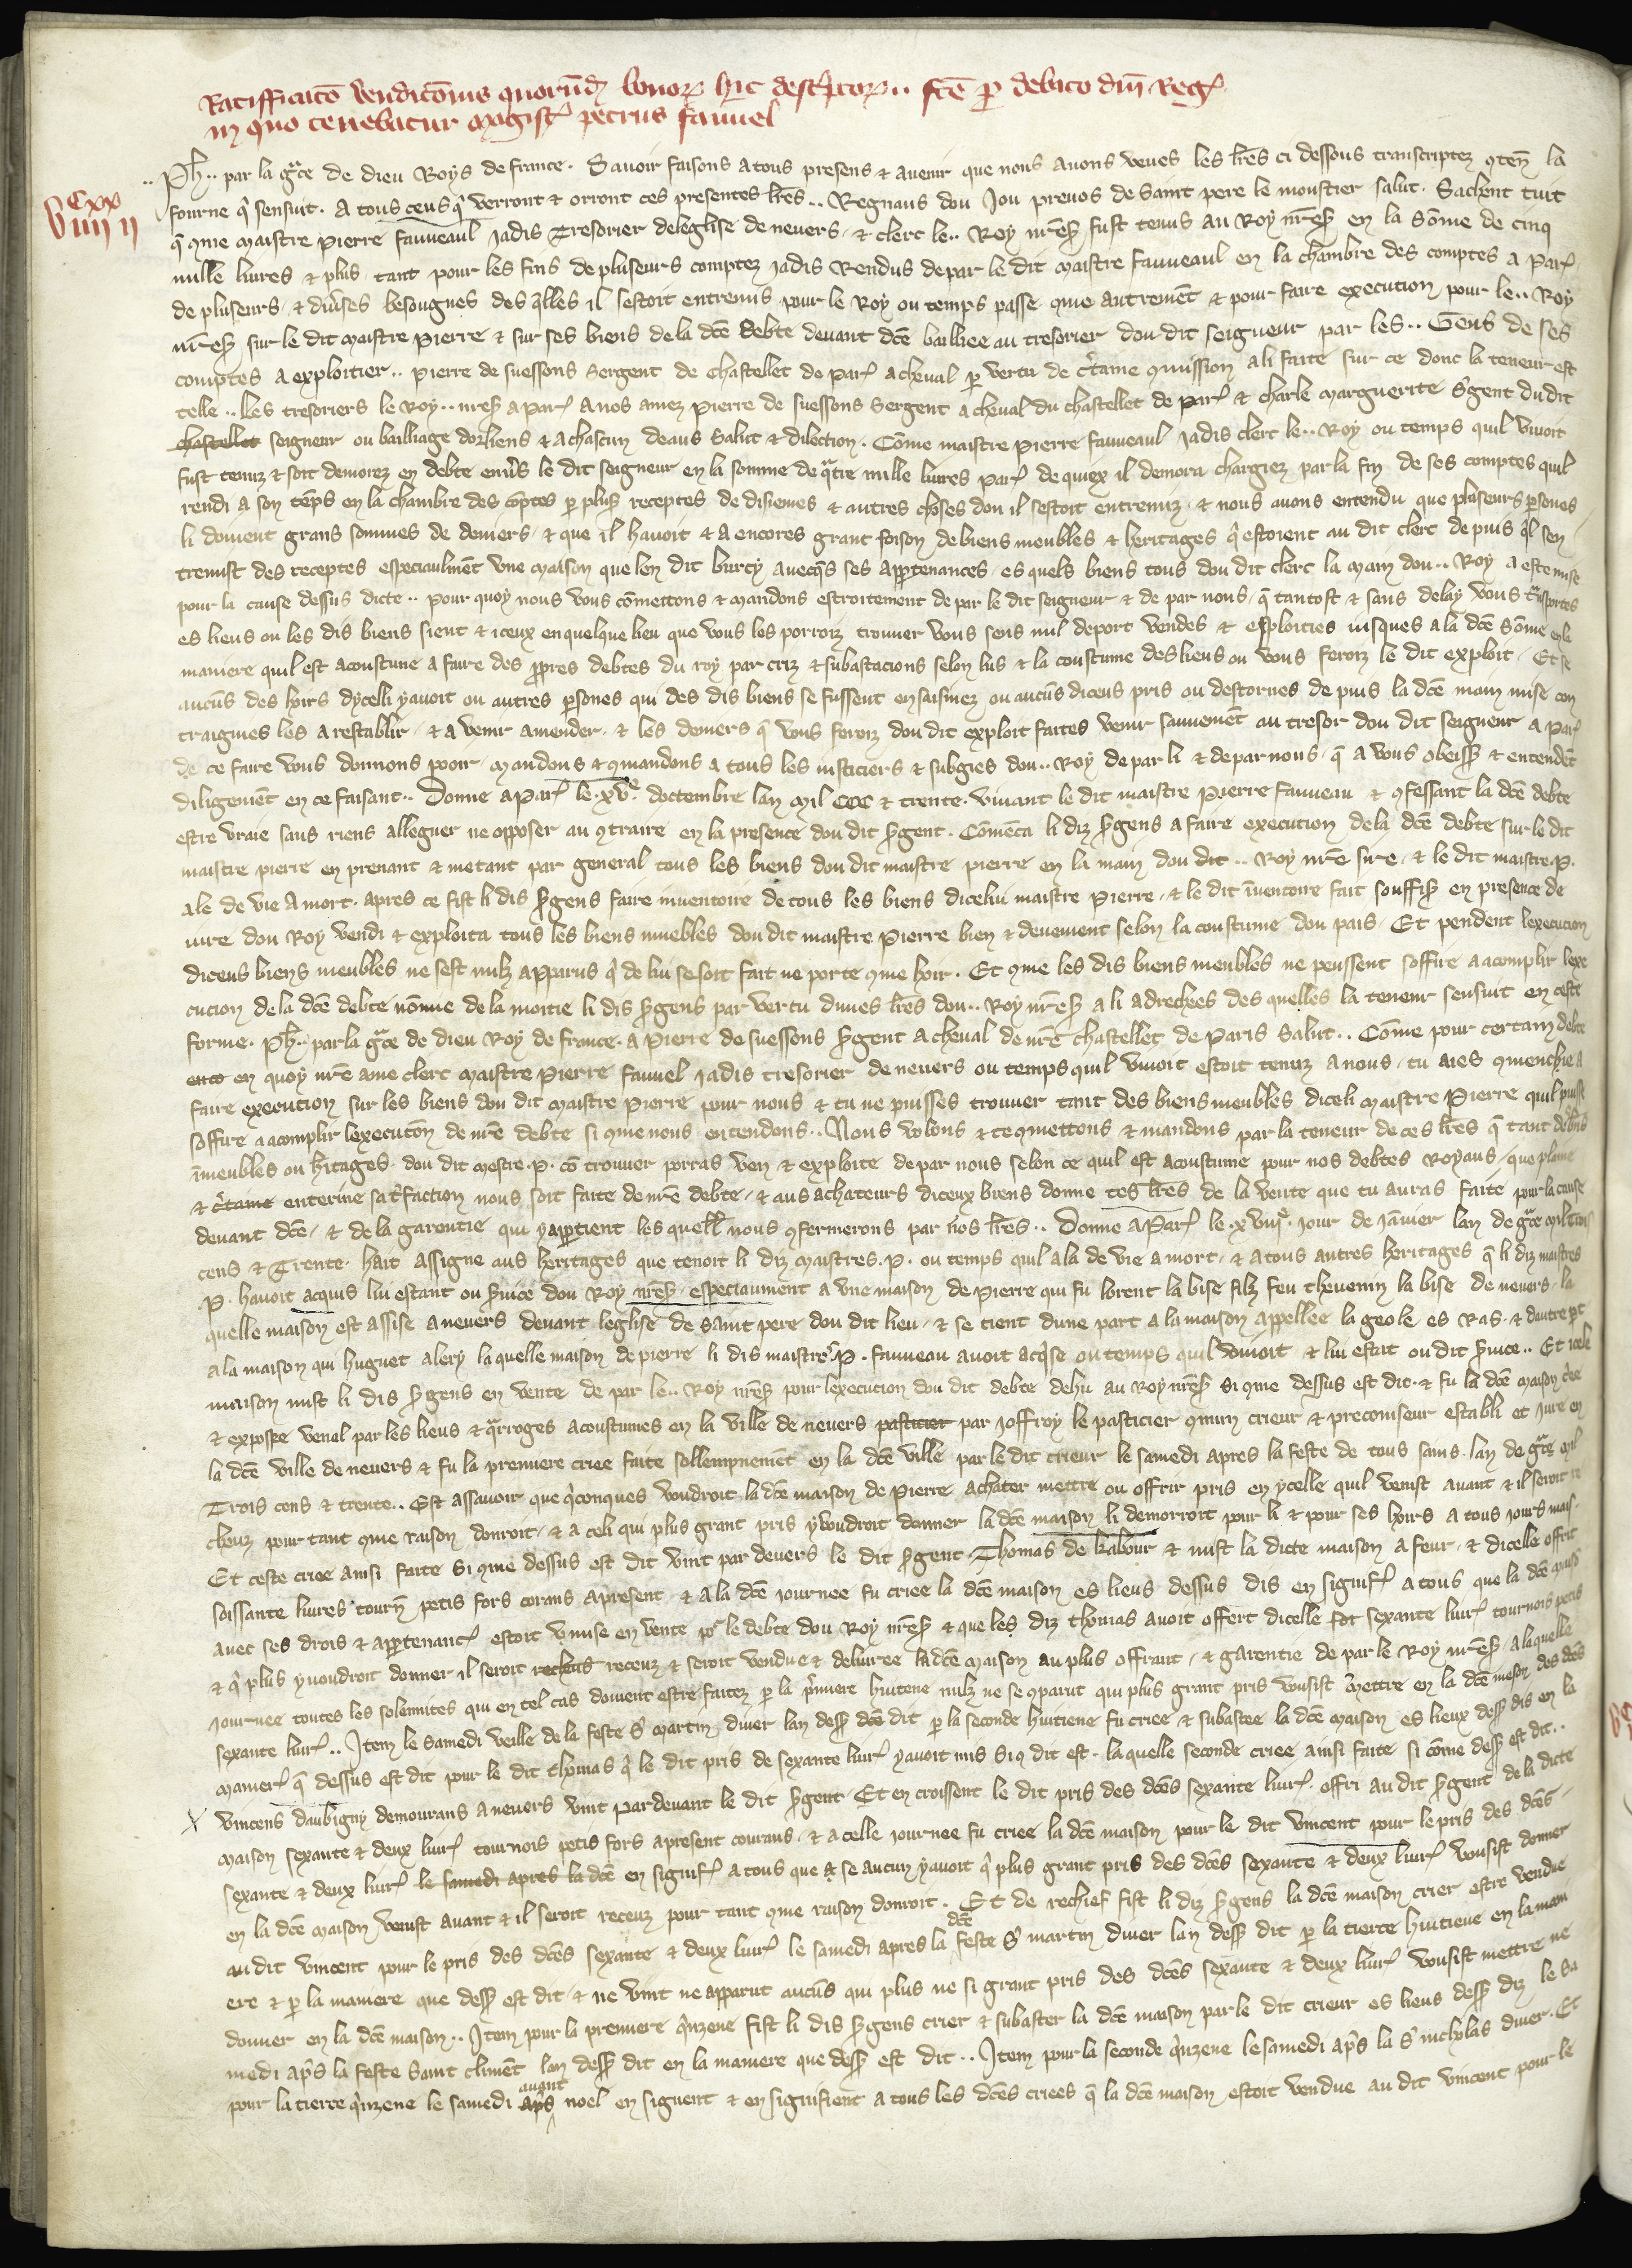 Ratifficatō vendicōnis quorūdꝫ bonoꝝ hic descptoꝝ .. fcē ꝑ debito dnī Reg
in quo tenebatur magistꝰ petrus fauuel
cxx
viii ii
.. Ph .. par la gͣce de dieu Roys de france . Sauoir faisons a tous presens & auenir que nous auons veues les lr̄es ci dessous transcriptez ꝯten̄ la
fourme qͥ sensuit . A tous ceus qͥ verront & orront ces presentes lr̄es .. Regnaus dou Jou preuos de saint pere le moustier salut . Sachent tuit
q̄ ꝯme maistre pierre fauueaul jadis Tresorier deleglise de neuers & clerc le .. Roy nr̄eſ fust tenus au Roy nr̄eſ en la Sōme de cinq
mille liures & plus tant pour les fins de pluseurs comptez jadis Rendus de par le dit maistre fauueaul en la chambre des comptes a Par
de pluseurs & diuses besougnes des qlles il sestoit entremis pour le Roy ou temps passe ꝯme autremēt & pour faire execution pour le .. Roy
nr̄eſ sur le dit maistre pierre & sur ses biens de la dcē debte deuant dcē bailliee au tresorier dou dit seigneur par les .. Gens de ses
comptes a exploitier .. pierre de suessons Sergent de Chastellet de Par a cheual ꝑ vertu de ctaine ꝯmission a li faite sur ce dont la teneur est
telle .. les tresoriers le Roy .. nr̄eſ a Par A nos amez pierre de suessons Sergent a cheual du chastellet de par & charle marguerite Sgent du dit
chastellet seigneur ou bailliage dorliens & a chascun deaus Salut & dilection . Cōme maistre pierre fauueaul jadis clerc le .. Roy ou temps quil viuoit
fust tenuz & soit demorez en debte enuˢs le dit seigneur en la somme de qͣtre mille liures par de quiex il demora chargiez par la fin de ses comptes quil
rendi a son tēps en la chambre des cōptes ꝑ plusˢ receptes de disiemes & autres choses don il sestoit entremiz & nous auons entendu que pluseurs ꝑsones
li doiuent grans sommes de deniers & que il hauoit & a encores grant foison de biens meubles & heritages qͥ estoient au dit clerc de puis ql sen
tremist des receptes especiaulmēt vne maison que len dit burcy auecqs ses appꝑtenances es quels biens tous dou dit clerc la main dou .. Roy a este mise
pour la cause dessus dicte .. pour quoy nous vous cōmettons & mandons estroitement de par le dit seigneur & de par nous q̄ tantost & sans delay vous tͣsportes
es lieus ou les dis biens sient & iceux en quelque lieu que vous les porroiz trouuer vous sens nul deport vendes & exploities iusques a la dcē Sōme en la
maniere quil est acoustume a faire des ꝓpres debtes du roy par criz & subastacions selon lus & la coustume des lieus ou vous feroiz le dit exploit . Et se
aucūs des hoirs dycelli yauoit ou autres ꝑsones qui des dis biens se fussent ensaisinez ou aucūs diceus pris ou destornes de puis la dcē main mise con
traignies les a restablir & a venir amender & les deniers q̄ vous feroiz dou dit exploit faites venir sauuemēt au tresor dou dit seigneur a Par
de ce faire vous donnons pooir mandons & ꝯmandons a tous les iusticiers & subgies dou .. Roy de par li & de par nous q̄ a vous obeisſ & entendēt
diligemēt en ce faisant .. Donne a Par le . xvᵉ . doctembre lan mil ccc & trente . viuant le dit maistre pierre fauueau & ꝯfessant la dcē debte
estre vraie sans riens alleguer ne opposer au ꝯtraire en la presence dou dit sgent . Cōmēca li diz sgens a faire execution de la dcē debte sur le dit
maistre pierre en prenant & metant par general tous les biens dou dit maistre pierre en la main dou dit .. Roy nr̄e sire & le dit maistre . P .
ale de vie a mort . apres ce fist li dis sgens faire inuentoire de tous les biens dicelui maistre pierre & le dit īuentoire fait souffisˢ en presence de
iure dou Roy vendi & exploita tous les biens muebles dou dit maistre pierre bien & deuement selon la coustume dou pais Et pendent lexecucion
diceus biens meubles ne sest nulz apparus qͥ de lui se soit fait ne porte ꝯme hoir . Et ꝯme les dis biens meubles ne peussent soffire a acomplir lexe
cucion de la dcē debte nōme de la moitie li dis sgens par vertu dunes lr̄es dou .. Roy nr̄eſ a li adrechees des quelles la teneur sensuit en ceste
forme . Ph .. par la gͣce de dieu Roy de france . a pierre de suessons sgent a cheual de nr̄e chastellet de Paris Salut .. Cōme pour certain debte
ento en quoy nr̄e ame clerc maistre pierre fauuel jadis tresorier de neuers ou temps quil viuoit estoit tenuz a nous tu aies ꝯmenchie a
faire execution sur les biens dou dit maistre pierre pour nous & tu ne puisses trouuer tant des biens meubles diceli maistre Pierre quil puisse
soffire a acomplir lexecutōn de nr̄e debte si ꝯme nous entendons .. Nous volons & te ꝯmettons & mandons par la teneur de ces lr̄es q̄ tant de bns
īmeubles ou hˢitages dou dit mestre . P . cō trouuer porras ven & exploite de par nous selon ce quil est acoustume pour nos debtes Royaus que plaine
& ctaine enterine satˢfaction nous soit faite de nr̄e debte & aus achateurs diceux biens donne tes lr̄es de la vente que tu auras faite pour la cause
deuant dcē & de la garentie qui y apꝑtient les quell nous ꝯfermerons par nos lr̄es .. Donne a Par le . xviijᵉ . jour de jāuier lan de gͣce mil trois
cens & Trente . hait assigne aus heritages que tenoit li diz maistres . P . ou temps quil ala de vie a mort & a tous autres heritages q̄ li diz maistres
. P . hauoit acquis lui estant ou suice dou Roy nr̄eſ especiaument a vne maison de pierre qui fu lorent la bise filz feu theuenin la bise de neuers la
quelle maison est assise a neuers deuant leglise de saint pere dou dit lieu & se tient dune part a la maison appellee la geole es Ras & dautre pt
a la maison qui huguet alery la quelle maison de pierre li dis maistreˢ . P . fauueau auoit acqͥse ou temps quil viuoit & lui estāt ou dit suice .. Et icele
maison mist li dis sgens en vente de par le .. Roy nr̄eſ pour lexecution dou dit debte dehu au Roy nr̄eſ si ꝯme dessus est dit & fu la dcē maison cˢiee
& exposee venel par les lieus & qͣrroges acoustumes en la ville de neuers pasticier par joffroy le pasticier ꝯmun crieur & preconiseur establi et jure en
la dcē ville de neuers & fu la premiere criee faite sollempnemēt en la dcē ville par le dit crieur le samedi apres la feste de tous sains lan de gͣce mil
Trois cens & trente .. Est assauoir que qͥconques voudroit la dcē maison de pierre achater mettre ou offrir pris en ycelle quil venist auant & il seroit re
cheuz pour tant ꝯme raison donroit & a celi qui plus grant pris y voudroit donner la dcē maison li demorroit pour li & pour ses hoirs a tous jours mais .
Et ceste criee ainsi faite si ꝯme dessus est dit vint par deuers le dit sgent Thomas de kabour & mist la dicte maison a feur & dicelle offrit
soissante liures tourn̄ petis fors corans apresent & a la dcē journee fu criee la dcē maison es lieus dessus dis en signif a tous que la dcē maisō
auec ses drois & apꝑtenanc estoit mise en vente poʳ le debte dou Roy nr̄eſ & que les diz thomas auoit offert dicelle sexante liur tournois petis
& qͥ plus y voudroit donner il seroit recheus receuz & seroit vendue & deliuree la dcē maison au plus offrant & garentie de par le Roy nr̄eſ a laquelle
journee toutes les solennites qui en tel cas doiuent estre faitez ꝑ la pͥmiere huitene nulz ne se ꝯparut qui plus grant pris vousist mettre en la dcē meson des dcēs
sexante liur .. Item le samedi veille de la feste Sᵗ martin diuer lan dessˢ dcē dit ꝑ la seconde huitiene fu criee & subastee la dcē maison es lieux dessˢ dis en la
manier q̄ dessus est dit pour le dit thomas qͥ le dit pris de sexante liur yauoit mis si ꝯ dit est . la quelle seconde criee ainsi faite si cōme dessˢ est dit ..
X vincens daubigny demourans a neuers vint par deuant le dit sgent Et en croissent le dit pris des dcēs sexante liur offri au dit sgent de la dicte
maison sexante & deux liur tournois petis fors apresent courans & a celle journee fu criee la dcē maison pour le dit vincent pour le pris des dcēs
sexante & deux liur le samedi apres la dcē en signif a tous que a se aucun yauoit qͥ plus grant pris des dcēs sexante & deux liur vousist donner
en la dcē maison venist auant & il seroit receuz pour tant ꝯme raison donroit . Et de rechief fist li diz sgens la dcē maison crier estre vendue
au dit vincent pour le pris des dcēs sexante & deux liur le samedi apres la dcē feste Sᵗ martin diuer lan dessˢ dit ꝑ la tierce huitiene en la mani
ere & ꝑ la maniere que dessˢ est dit & ne vint ne apparut aucūs qui plus ne si grant pris des dcēs sexante & deux liur vousist mettre ne
donner en la dcē maison .. Item pour la premiere qͥnzene fist li dis sgens crier & subaster la dcē maison par le dit crieur es lieus dessˢ diz le sa
medi apˢs la feste saint climēt lan dessˢ dit en la maniere que dessˢ est dit .. Item pour la seconde qͥnzene le samedi apˢs la Sᵗ nicholas diuer . Et
pour la tierce qͥnzene le samedi apˢs auant noel en siguent & en signifient a tous les dcēs criees q̄ la dcē maison estoit vendue au dit vincent pour le